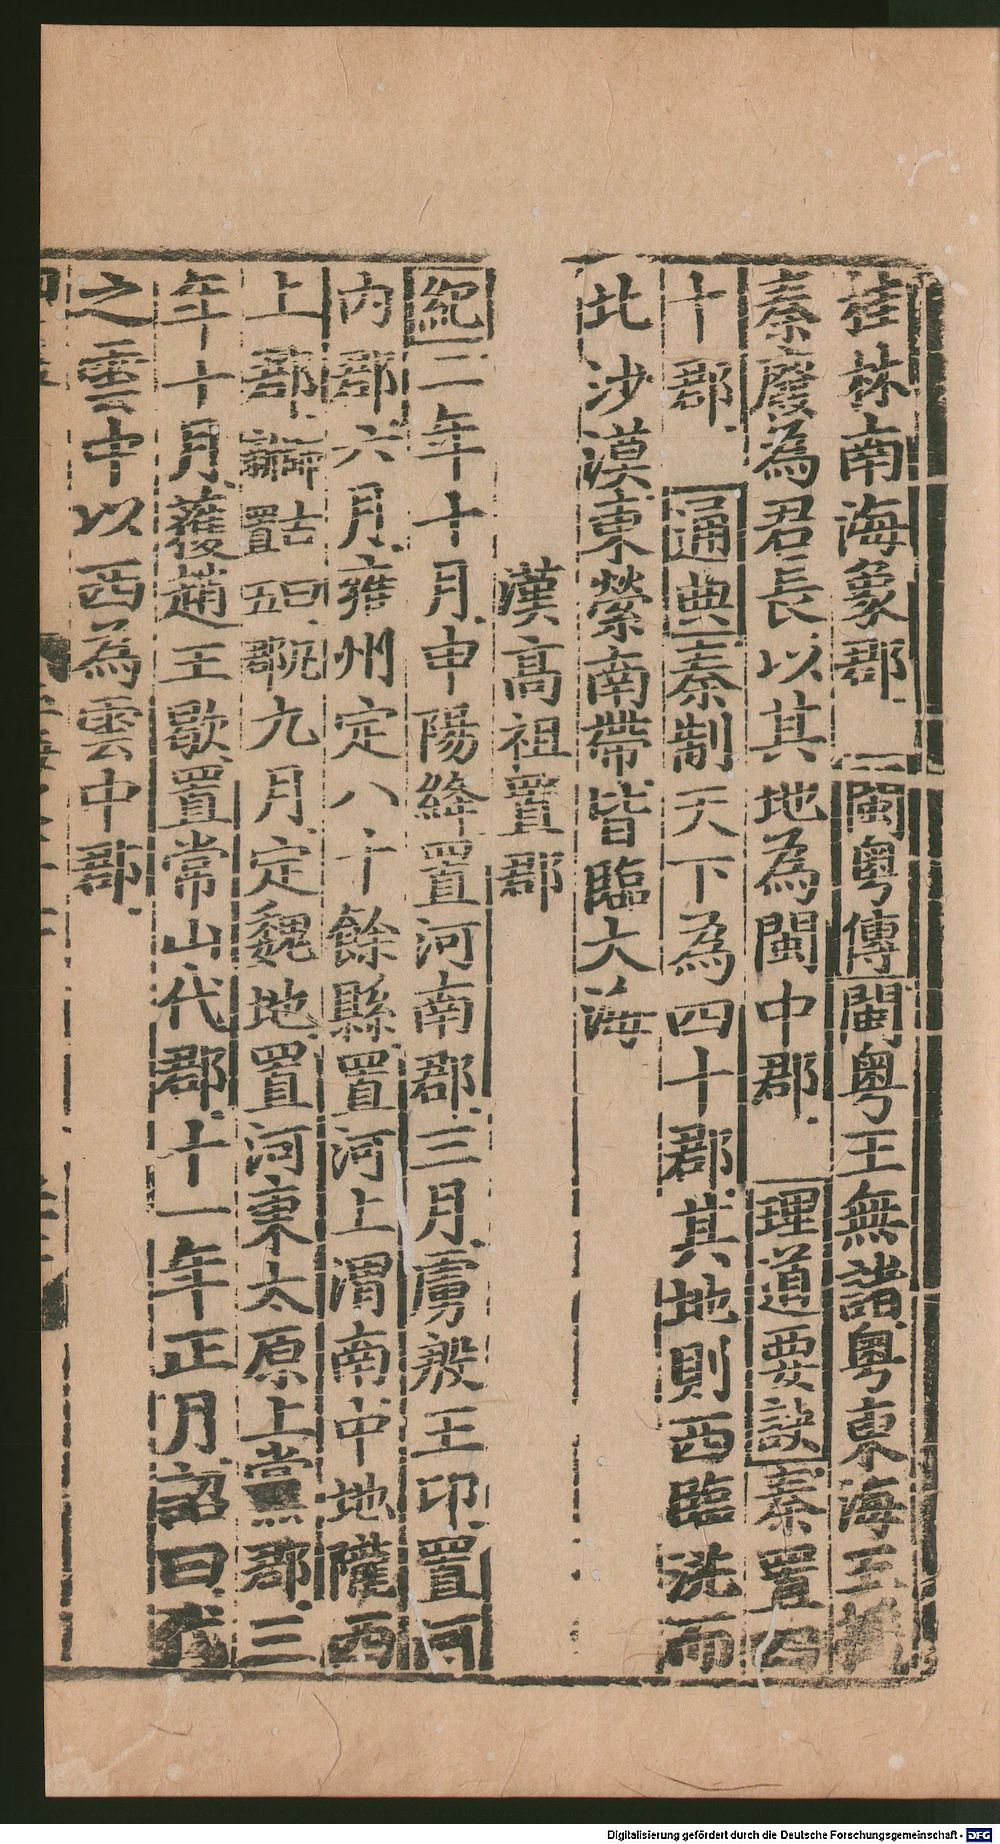 桂林南海象郡 閩粵傳閩粵王無諸粵東海王搖
秦廢為君長以其地為閩中郡 理道要訣秦置四
十郡 通典秦制天下為四十郡其地則西臨洮而
北沙漠東縈南帶皆臨大海
漢高祖置郡
紀二年十月申陽降置河南郡三月虜殷王卬置河
內郡六月雍州定八十餘縣置河上渭南中地隴西
上郡 九月定魏地置河東太原上黨郡三
年十月獲趙王歇置常山代郡十一年正月詔曰代
之雲中以西為雲中郡
Digitalisierung gefördert durch die Deutsche Forschungsgemeinschaft - DFG